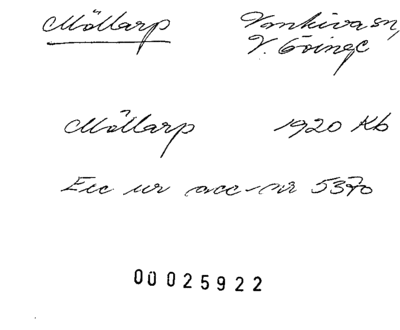 Möllarp Vankiva sn,
V. Göinge
Möllarp 1920 Kb
Exc ur acc-nr 5370
00025922